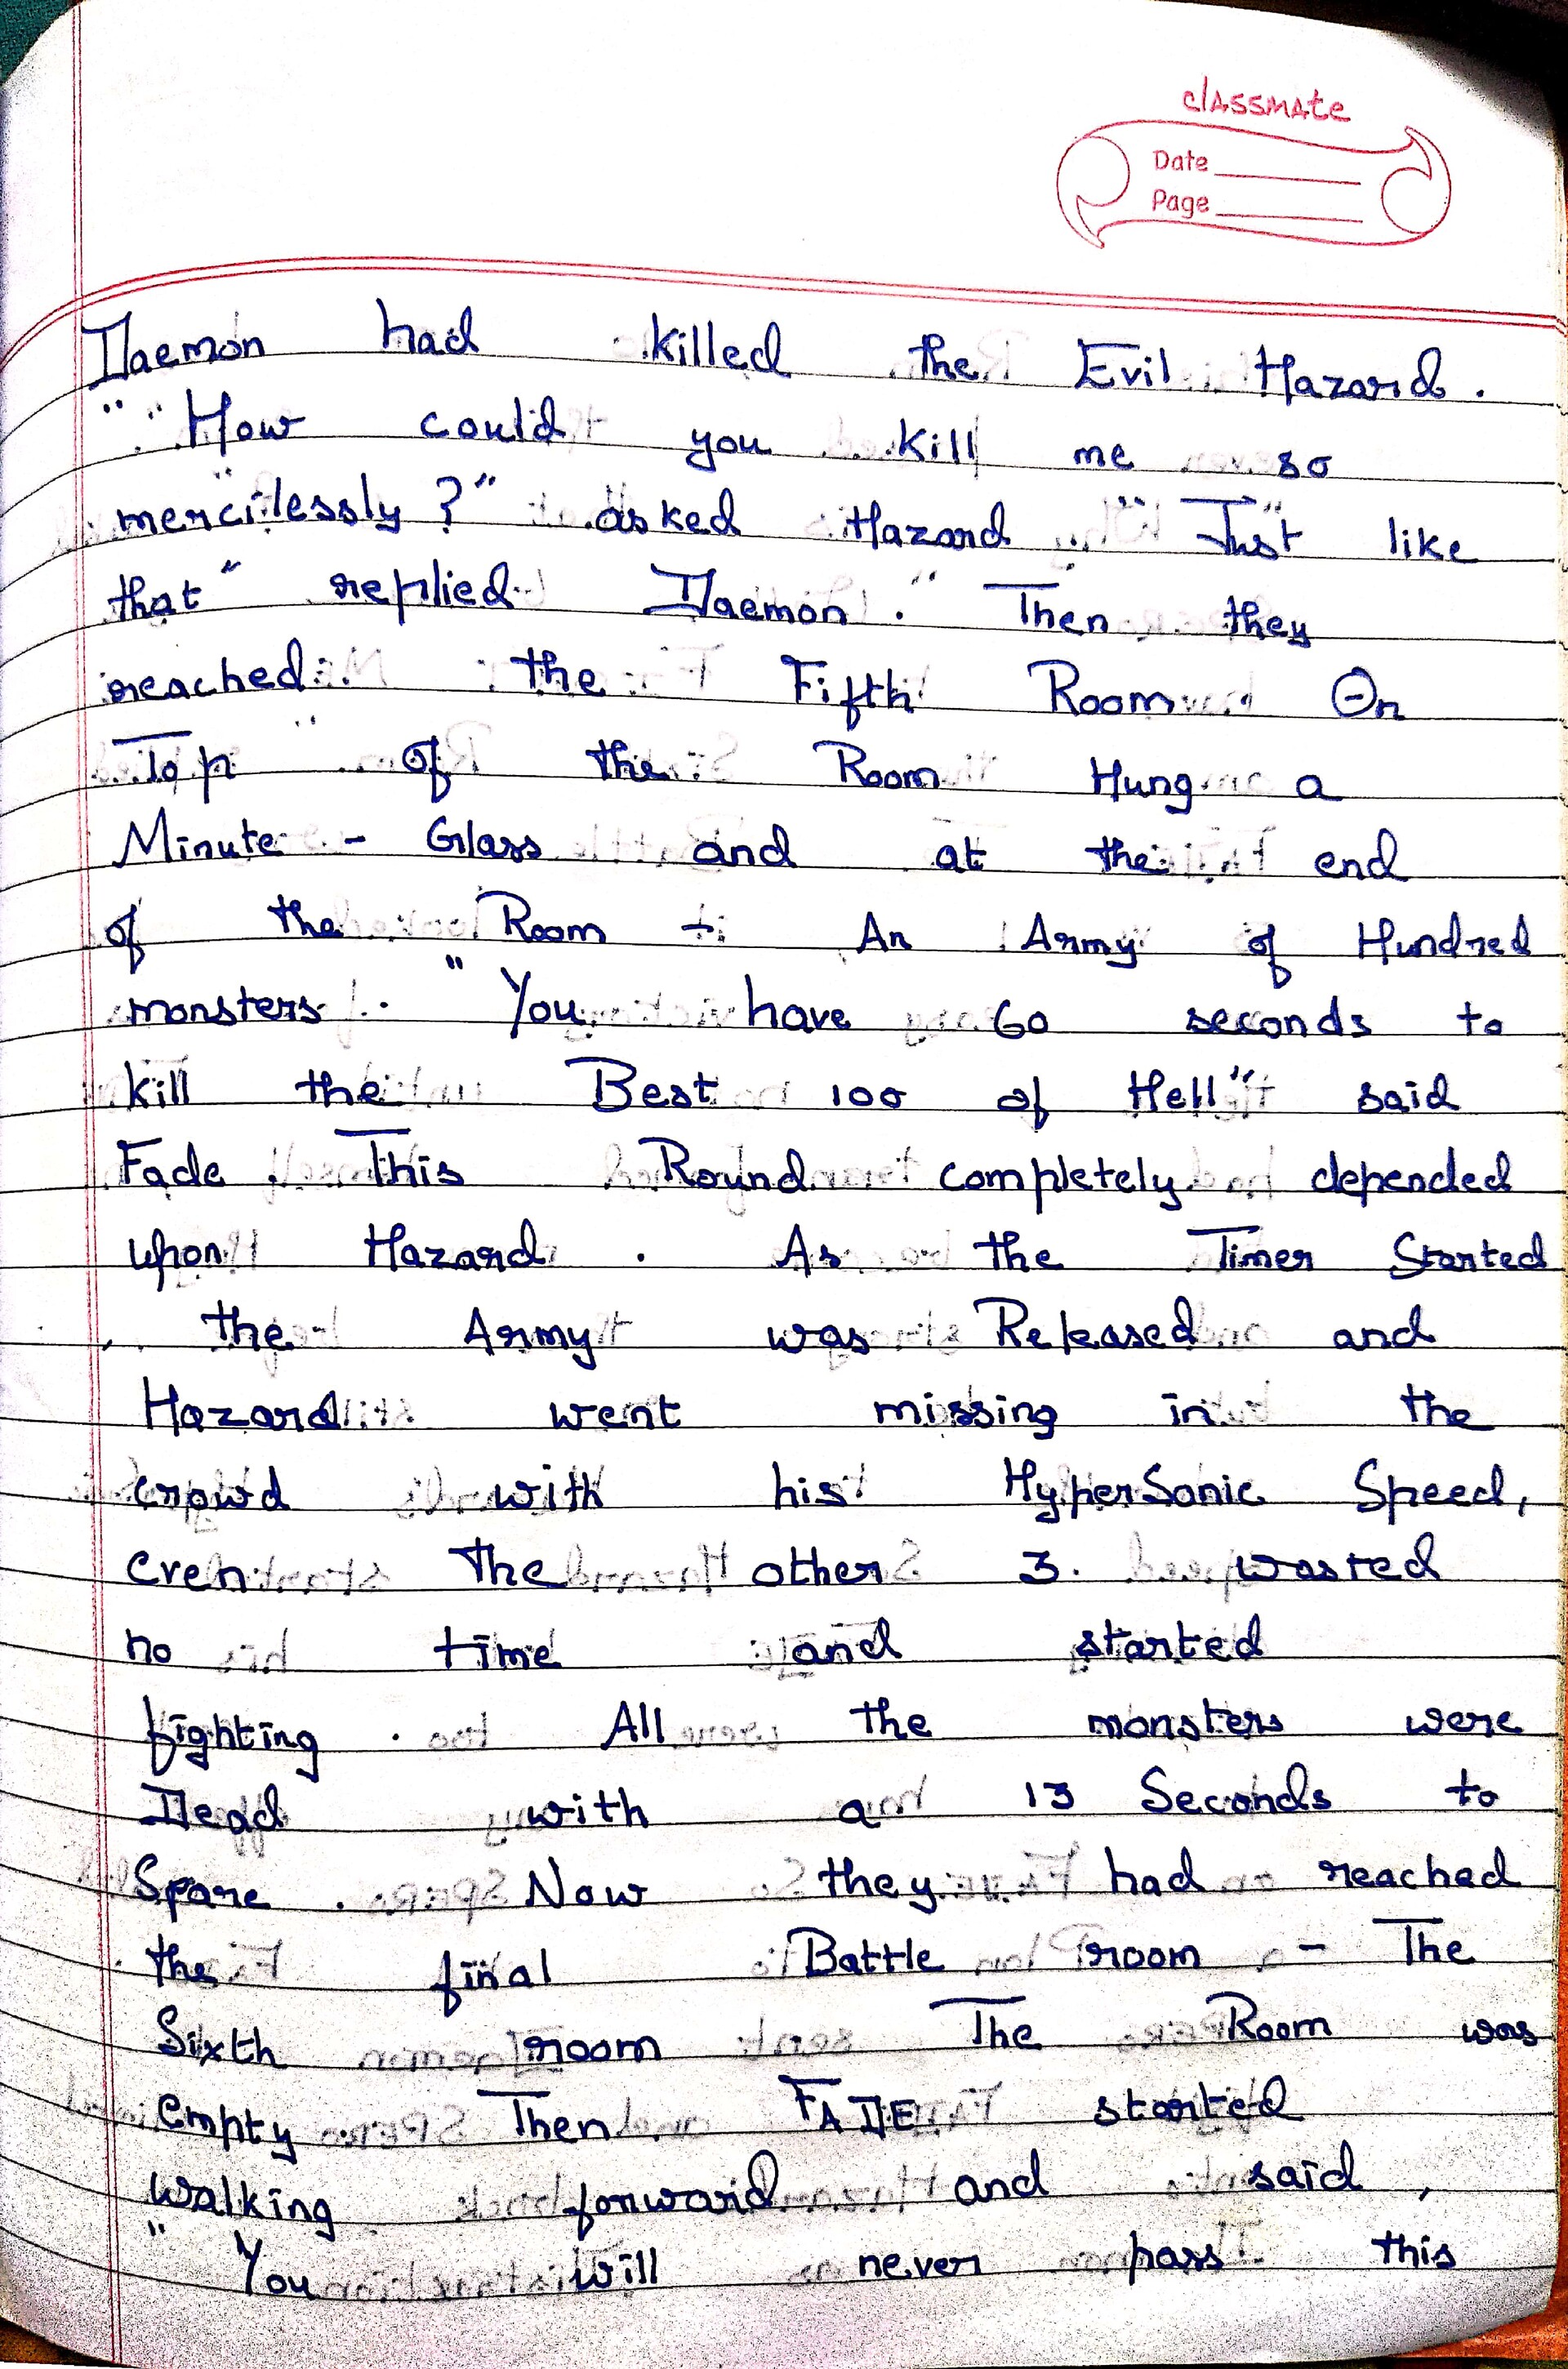 classmate
Date
Page
Daemon had killed the Evil Hazard.
"How could you kill me so
mercilessly?" asked Hazard "Just like
that" replied Daemon. Then they
reached the Fifth Room On
Top of the Room Hung a
Minute - Glass and at the end
of the Room - An Army of Hundred
monsters. "You have 60 seconds to
kill the Best 100 of Hell" said
Fade. This Round completely depended
upon Hazard. As the Timer Started
, the Army was Released and
Hazard went missing in the
crowd with his HyperSonic Speed,
even the other 3 wasted
no time and started
fighting. All the monsters were
Dead with a 13 Seconds to
Spare. Now they had reached
the final Battle room - The
Sixth room The Room was
empty Then FADE started
walking forward and said,
"You will never pass this